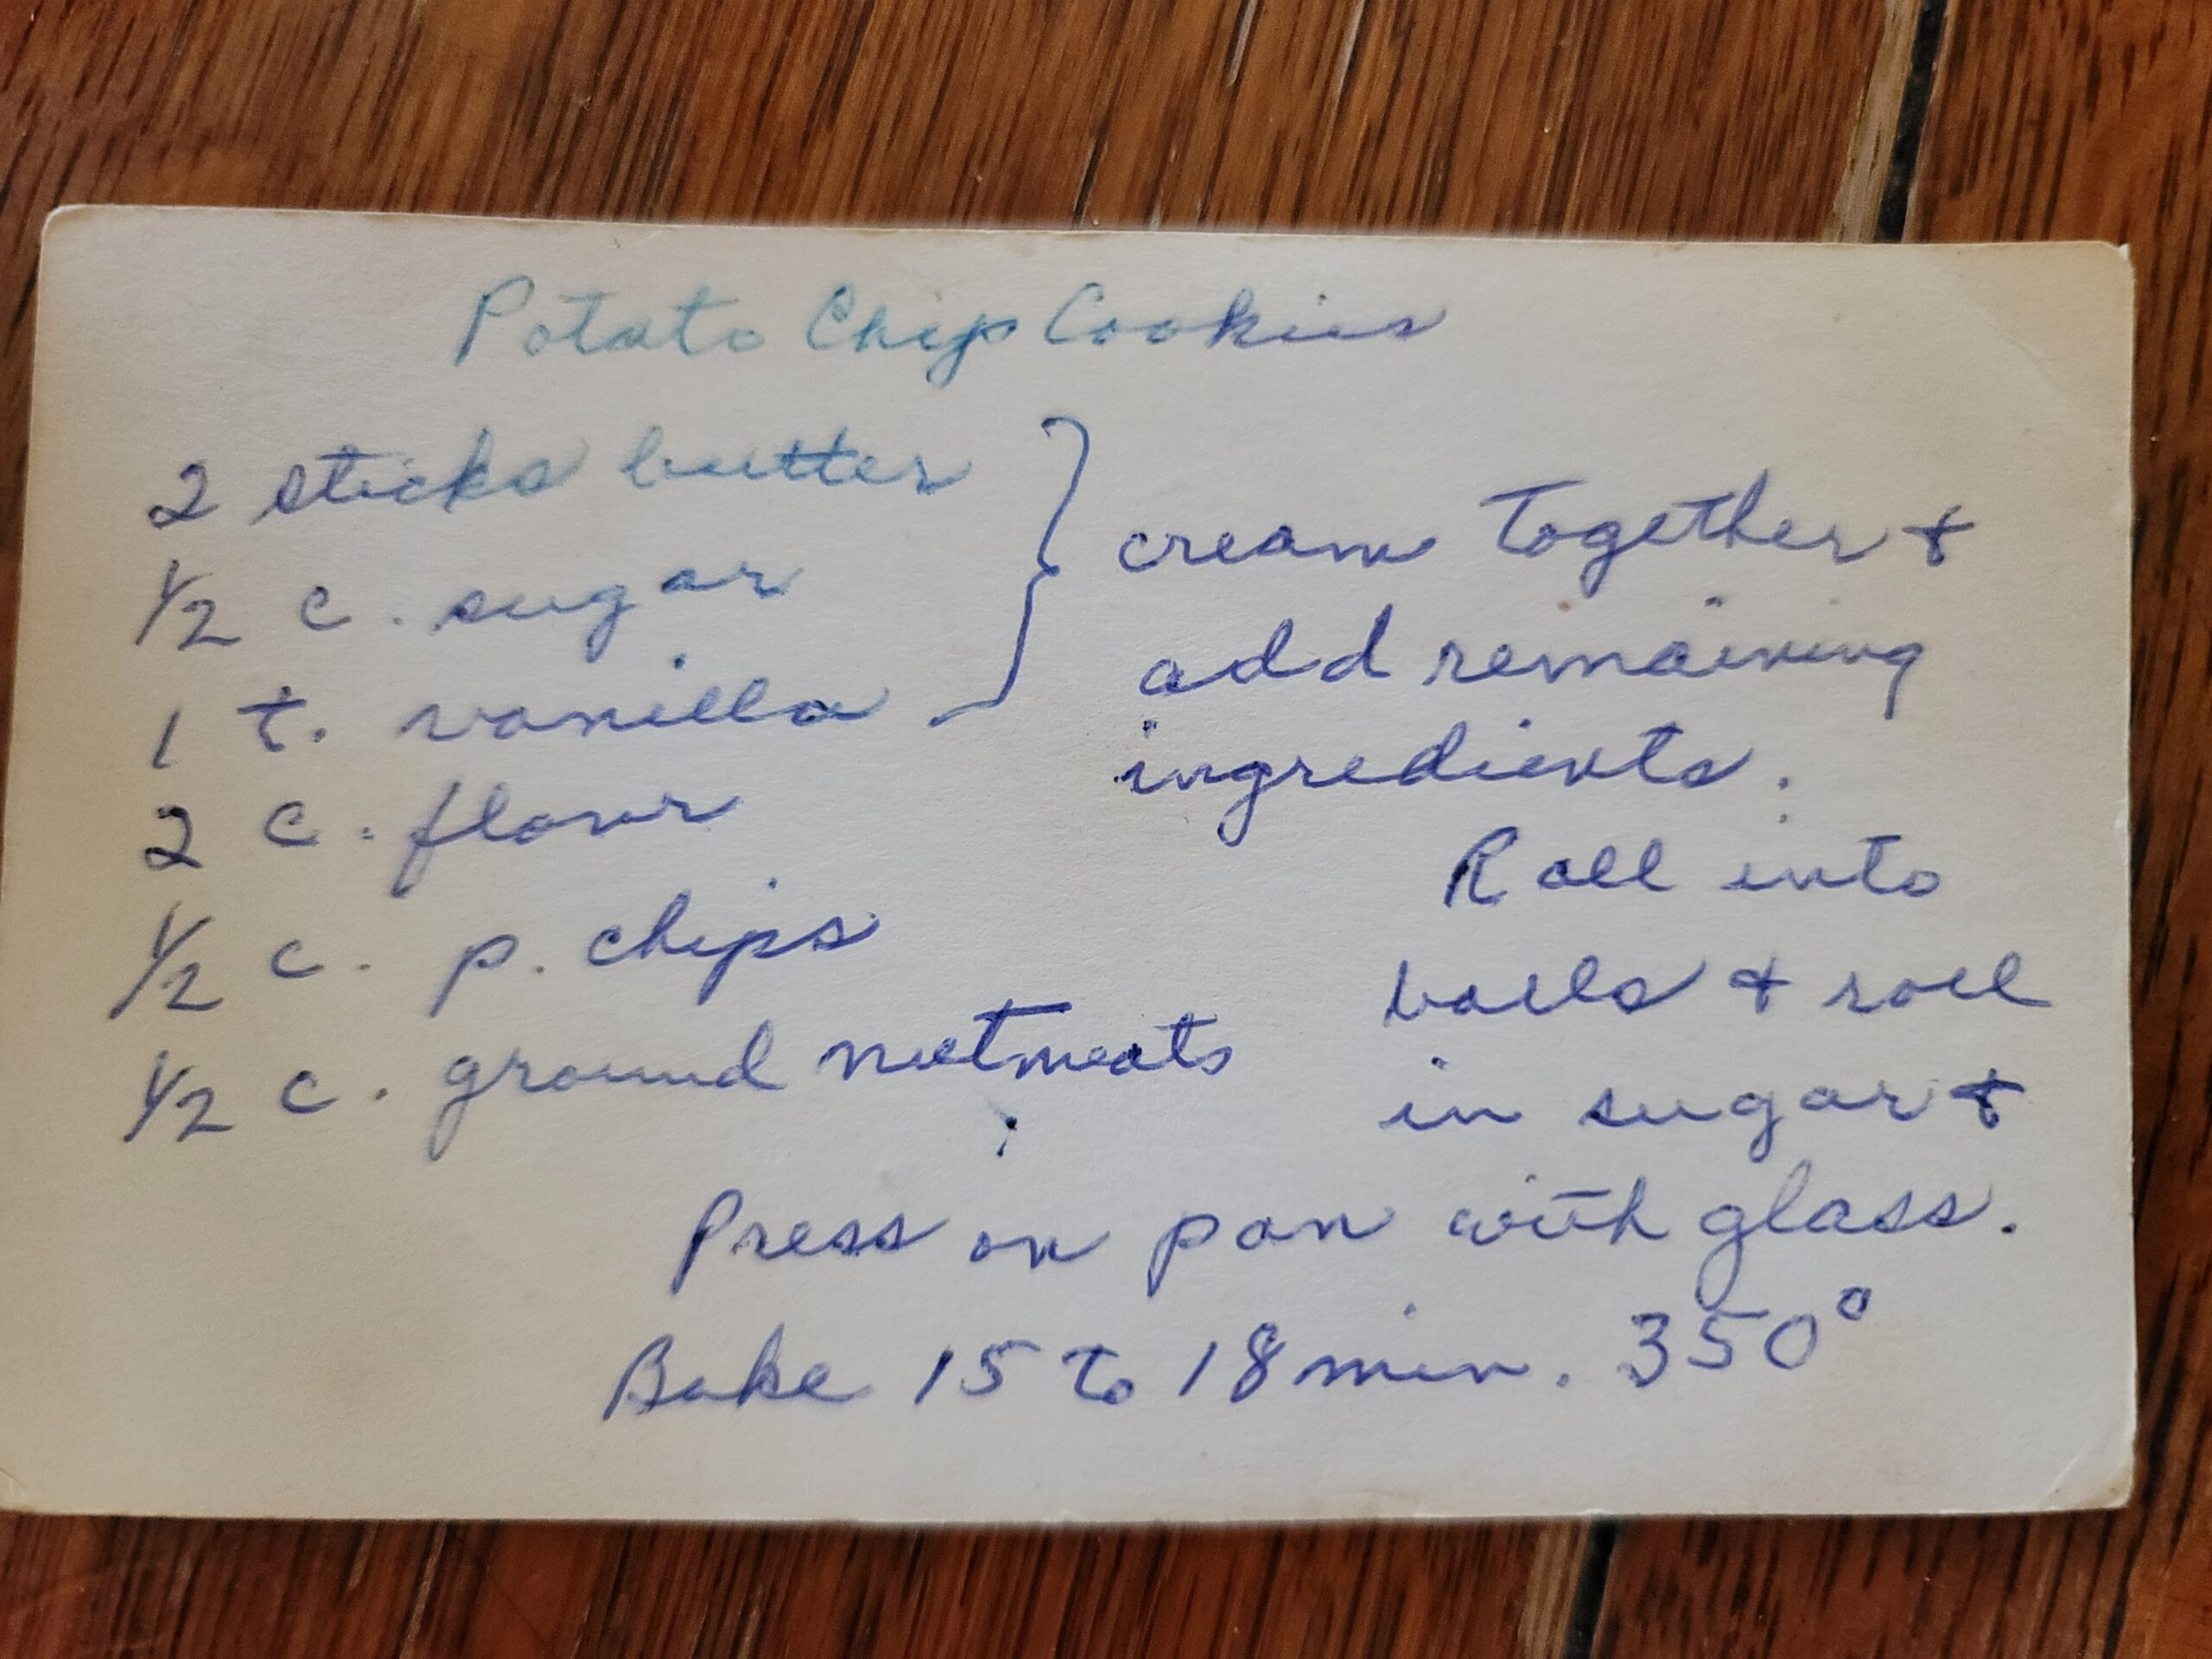 Potato Chip Cookies
2 sticks butter
1/2 c. sugar
1 t. vanilla
cream together &
add remaining
ingredients.
2 c. flour
1/2 c. p. chips
1/2 c. ground nutmeats
Roll into
balls & roll
in sugar &
Press on pan with glass.
Bake 15 to 18 min. 350°